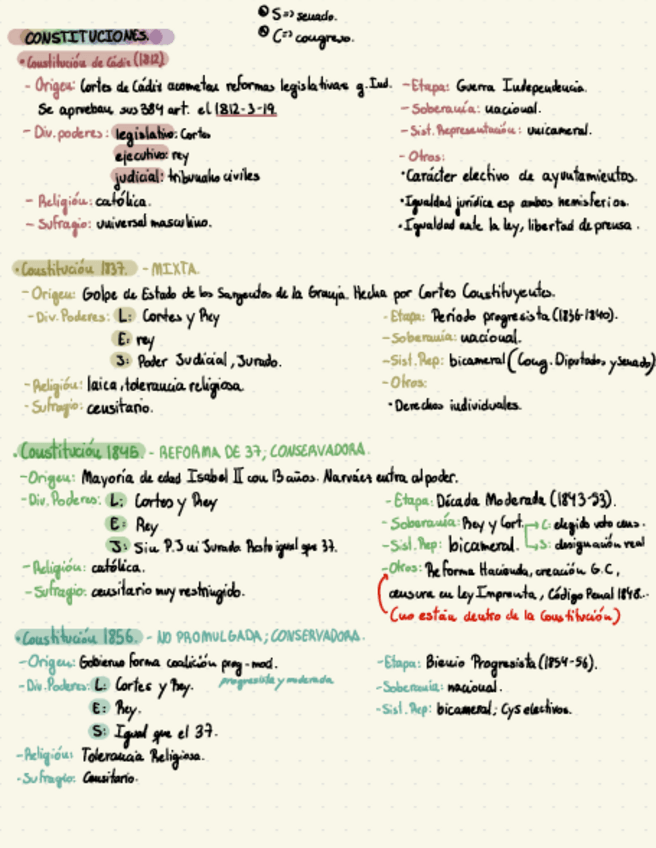 S=> senado.
C=> congreso.
CONSTITUCIONES.
• Constitución de Cádiz (1812)
- Origen: Cortes de Cádiz acometen reformas legislativas g. Ind.
Se aprueban sus 384 art. el 1812-3-19.
- Div. poderes: legislativo: Cortes
ejecutivo: rey
judicial: tribunales civiles
- Religión: católica.
- Sufragio: universal masculino.
- Etapa: Guerra Independencia.
- Soberanía: nacional.
- Sist. Representación: unicameral.
- Otros:
• Carácter electivo de ayuntamientos.
• Igualdad jurídica esp ambos hemisferios.
• Igualdad ante la ley, libertad de prensa.
• Constitución 1837. - MIXTA.
- Origen: Golpe de Estado de los Sargentos de la Granja. Hecha por Cortes Constituyentes.
- Div. Poderes: L: Cortes y Rey
E: rey
J: Poder Judicial, Jurado.
- Religión: laica, tolerancia religiosa.
- Sufragio: censitario.
- Etapa: Período progresista (1836-1840).
- Soberanía: nacional.
- Sist. Rep: bicameral (Cong. Diputados y senado)
- Otros:
• Derechos individuales.
• Constitución 1845. - REFORMA DE 37; CONSERVADORA.
- Origen: Mayoría de edad Isabel II con 13 años. Narváez entra al poder.
- Div. Poderes: L: Cortes y Rey
E: Rey
J: Sin P.J ni Jurado Resto igual que 37.
- Religión: católica.
- Sufragio: censitario muy restringido.
- Etapa: Década Moderada (1843-53).
- Soberanía: Rey y Cort. C: elegido voto cens.
- Sist. Rep: bicameral. S: designación real
- Otros: Reforma Hacienda, creación G.C,
censura en Ley Imprenta, Código Penal 1848...
(no están dentro de la Constitución)
• Constitución 1856. - NO PROMULGADA; CONSERVADORA.
- Origen: Gobierno forma coalición prog-mod.
progresista y moderada
- Div. Poderes: L: Cortes y Rey.
E: Rey.
S: Igual que el 37.
- Religión: Tolerancia Religiosa.
- Sufragio: Censitario.
- Etapa: Bienio Progresista (1854-56).
- Soberanía: nacional.
- Sist. Rep: bicameral; CyS electivos.